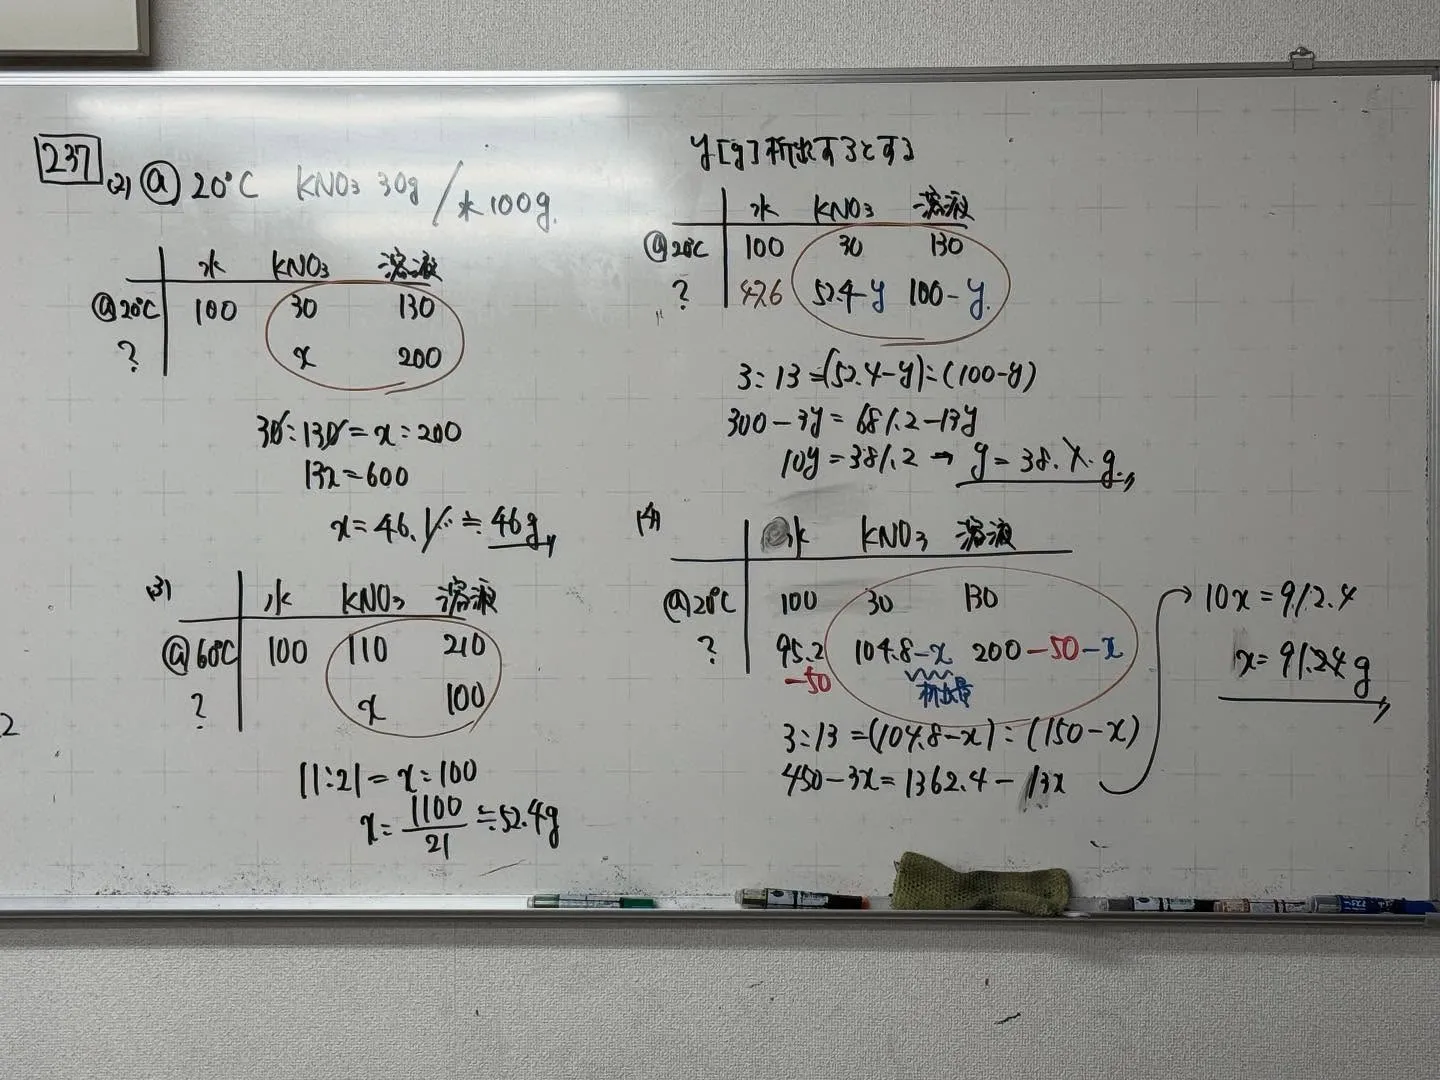 237 (2) @ 20°C KNO3 30g / 水100g.
水 KNO3 溶液
@20°C 100 30 130
? x 200
30:130=x:200
13x=600
x=46.1… ≒ 46g
(3) 水 KNO3 溶液
@60°C 100 110 210
? x 100
11:21=x:100
x=1100/21≒52.4g
2
y[g]析出するとする
水 KNO3 溶液
@20°C 100 30 130
? 47.6 52.4-y 100-y.
3:13=(52.4-y):(100-y)
300-3y=681.2-13y
10y=381.2→ y=38.1.g
(4) 水 KNO3 溶液
@20°C 100 30 130
? 95.2 104.8-x 200-50-x
-50 析出量
3:13=(104.8-x):(150-x)
450-3x=1362.4-13x
10x=912.4
x=91.24g